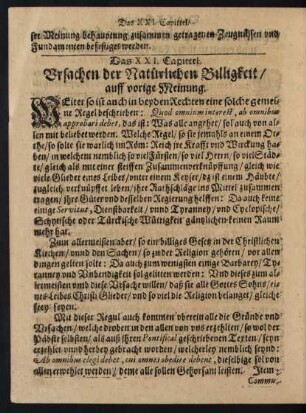 Das XXI. Capittel/
ser Meinung behauptung zusammen getragenen Zeugnissen und
Fundamenten befestiget werden.
Das XXI. Capittel.
Vrsachen der Natürlichen Billigkeit/
auff vorige Meinung.
WEiter so ist auch in beyden Rechten eine solche gemei-
ne Regel beschrieben: Quod omnium interest, ab omnibus
approbari debet, Das ist: Was alle angehet/ sol auch von al-
len mit beliebet werden. Welche Regel/ so sie jemahls an einem Or-
the/ so solte sie warlich im Röm: Reich jre Krafft und Wirckung ha-
ben/ in welchem nemblich so viel Fürsten/ so viel Herrn/ so viel Städ-
te/ gleich als mit einer steiffen Zusammenverknüpffung/ gleich wie
viele Glieder eines Leibes/ unter einem Keyser/ da ist einem Häupte/
zugleich verknüpffet leben/ ihre Rathschläge ins Mittel zusammen
tragen/ ihre Güter und desselben Regierung helffen: Da auch keine
einige Servitut, Dienstbarkeit/ und Tyranney/ und Cyclopische/
Scytische oder Türckische Wütigkeit gäntzlichen keinen Raum
mehr hat.
Zum allermeisten aber/ so ein billiges Gesetz in der Christlichen
Kirchen/ unnd den Sachen/ so zu der Religion gehören/ vor allen
dingen gelten solte: Da auch zum wenigsten einige Barbarey/ Ty-
ranney und Unbendigkeit sol gelitten werden: Und dieses zum al-
lermeisten umb diese Ursache willen/ daß sie alle Gottes Sohns/ ei-
nes Leibes Christi Glieder/ und so viel die Religion belanget/ gleiche
seyn.
Mit dieser Regul auch kommen überein alle die Gründe und
Vrsachen/ welche droben in den allen von uns erzehlten/ so wol der
Päbste selbsten/ als auß ihren Pontifical geschriebenen Texten/ seyn
erzehlet und herbey gebracht worden/ welcherley nemblich seynd:
Ab omnibus elegi debet, cui omnes obedire debent, dieselbige sol von
allen erwehlet werden/ deme alle sollen Gehorsam leisten. Item:
Commu-